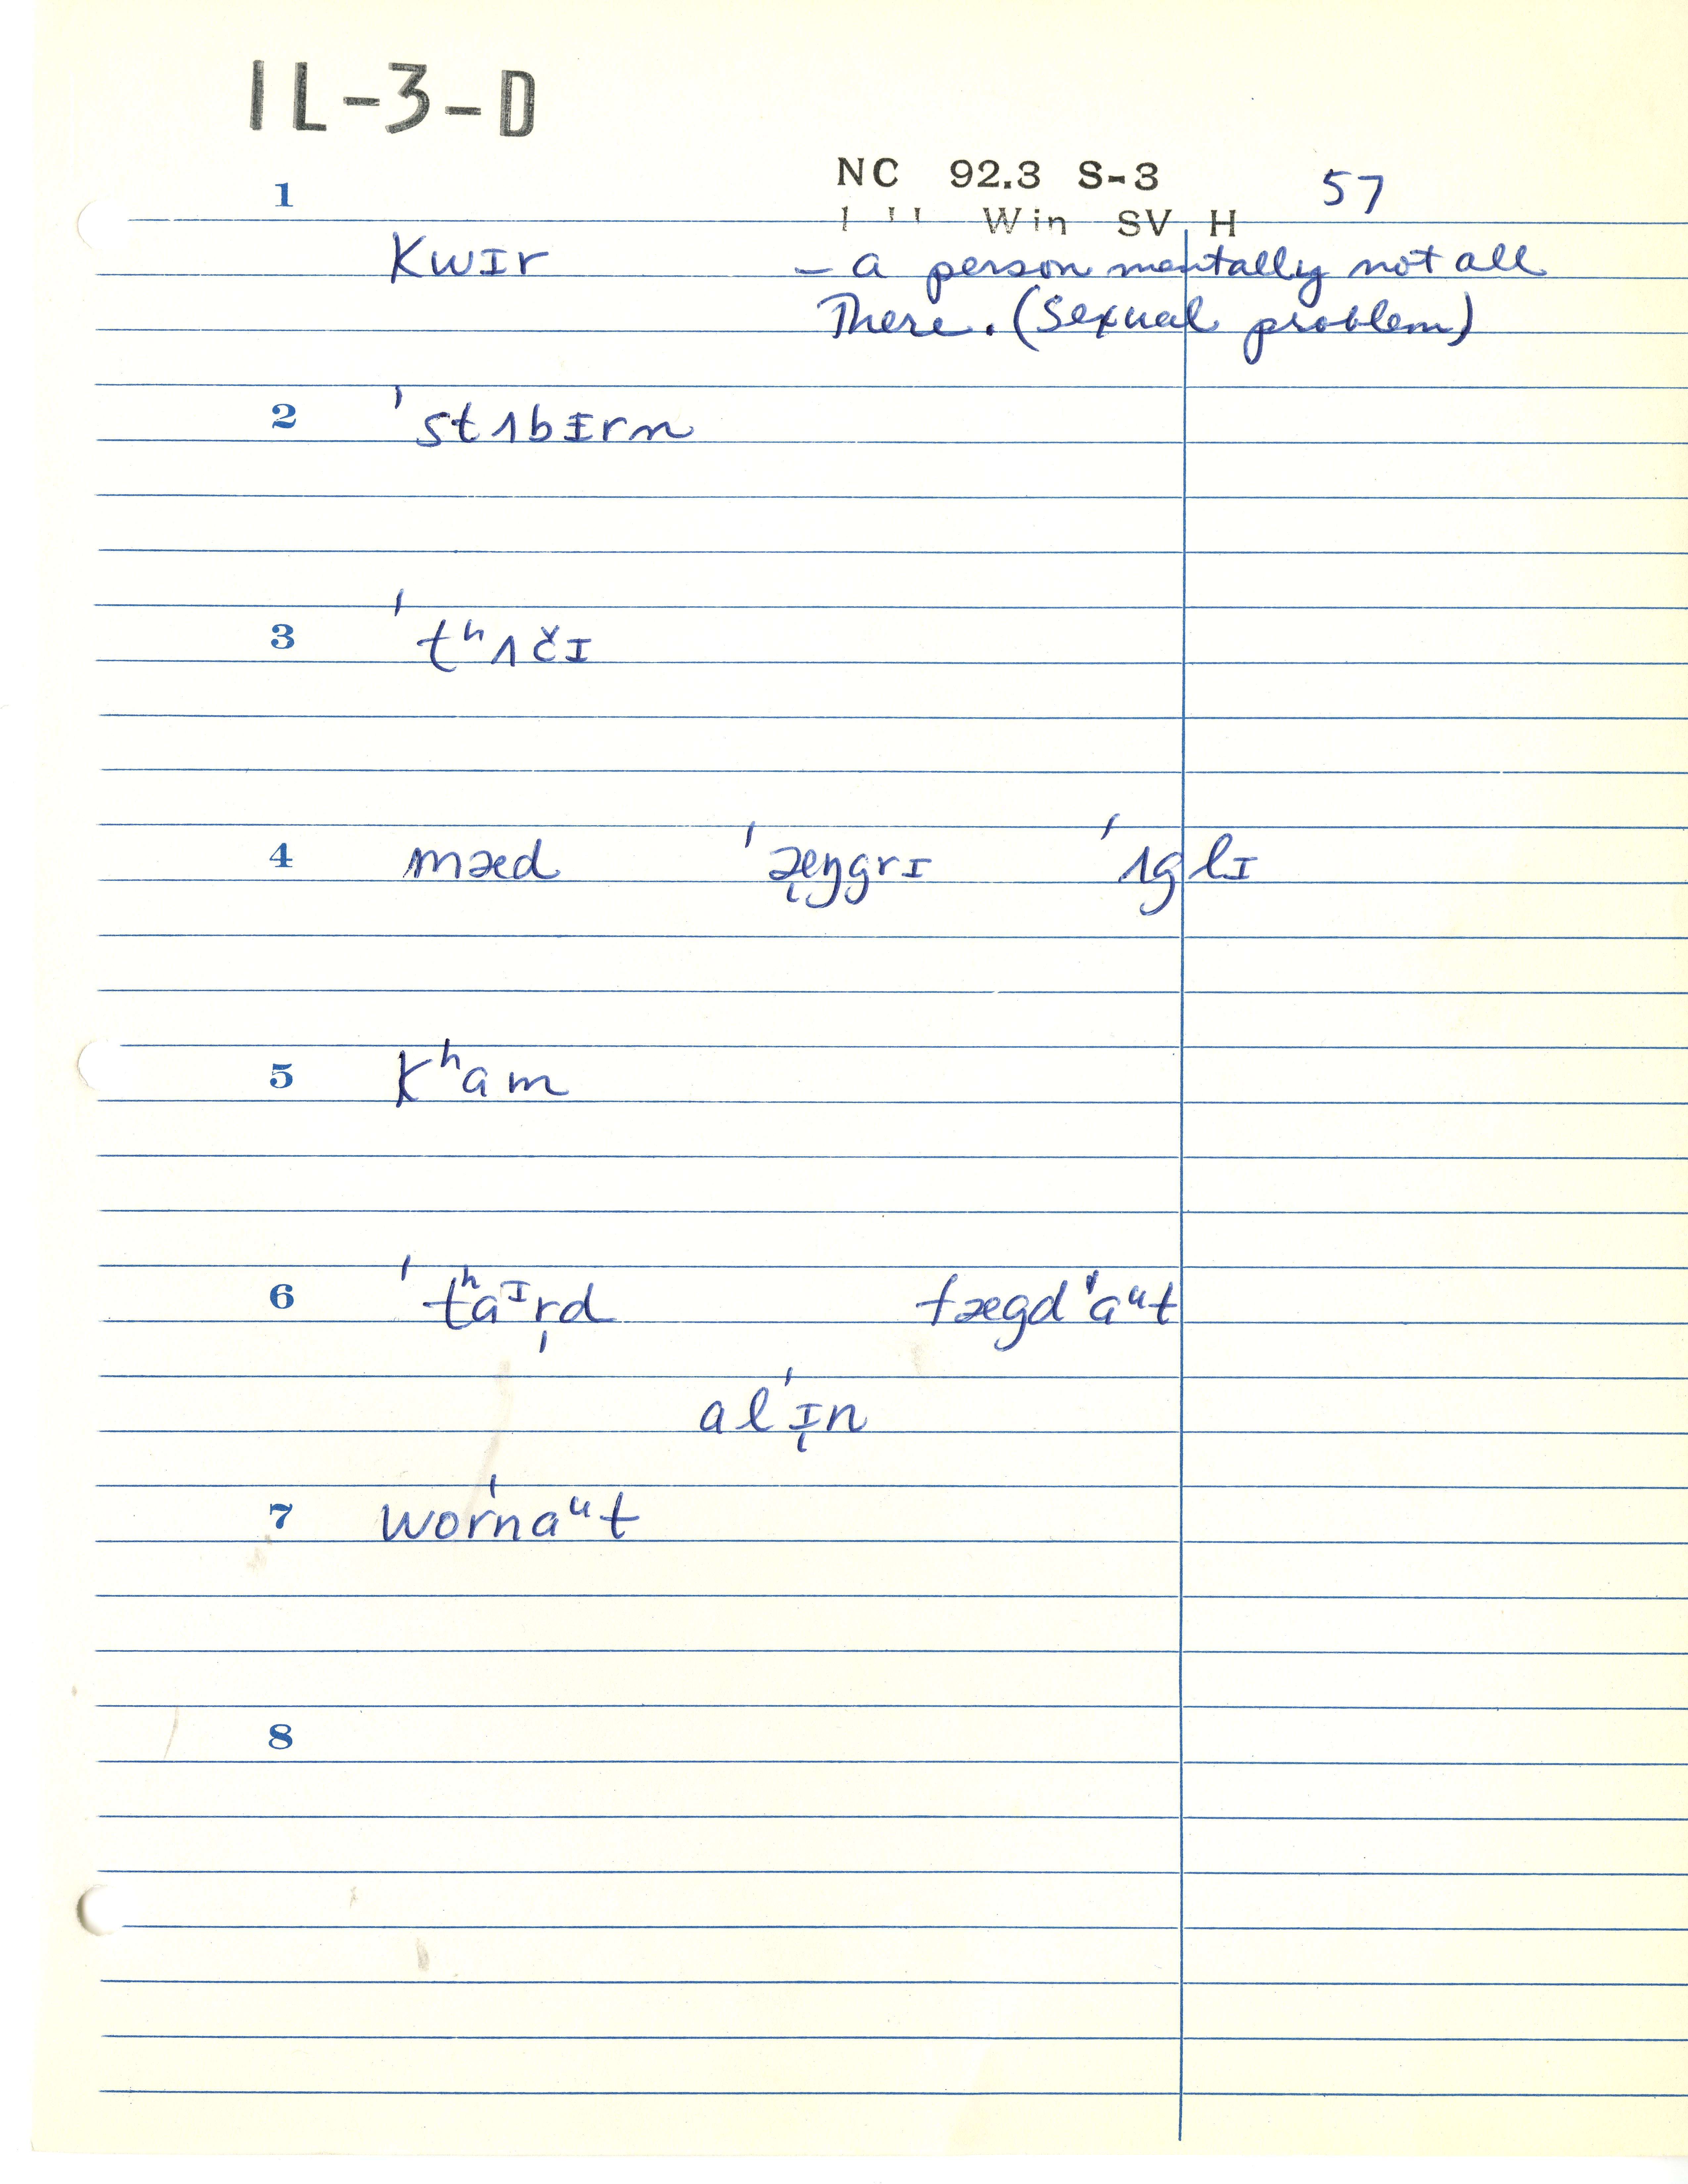 IL-3-D
NC 92.3 S-3 57
Win SV H
1 kwɪr – a person mentally not all
there. (Sexual problem)
2 ˈstʌbɪrn
3 ˈtʰʌčɪ
4 mæd ˈæ̨ŋgrɪ ˈʌglɪ
5 kʰam
6 ˈtʰaᶦr̩d fægdˈaᵘt
alˈɪ̨n
7 worˈnaᵘt
8